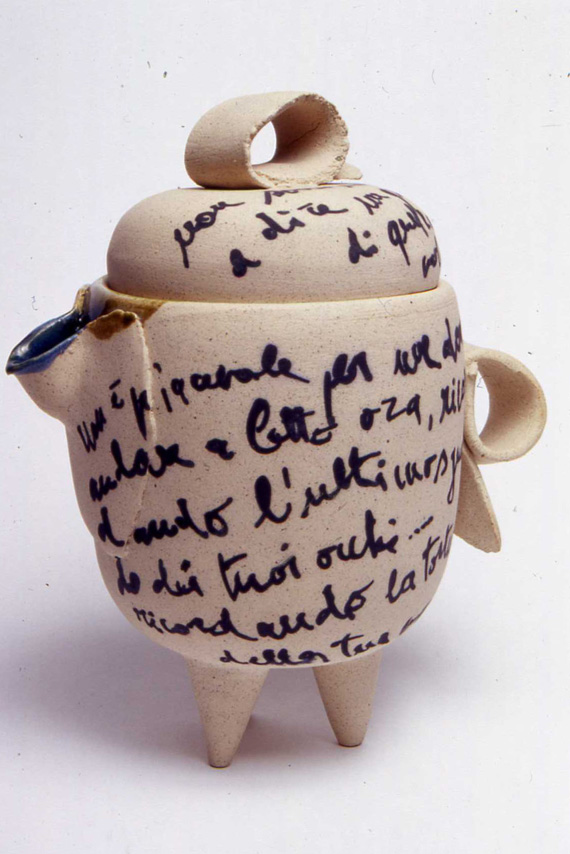 non
a dire
di
Non è piacevole per
andare a letto ora, ric
dando l'ultimo sgu
do dei tuoi occhi...
ricordando la
delle tue